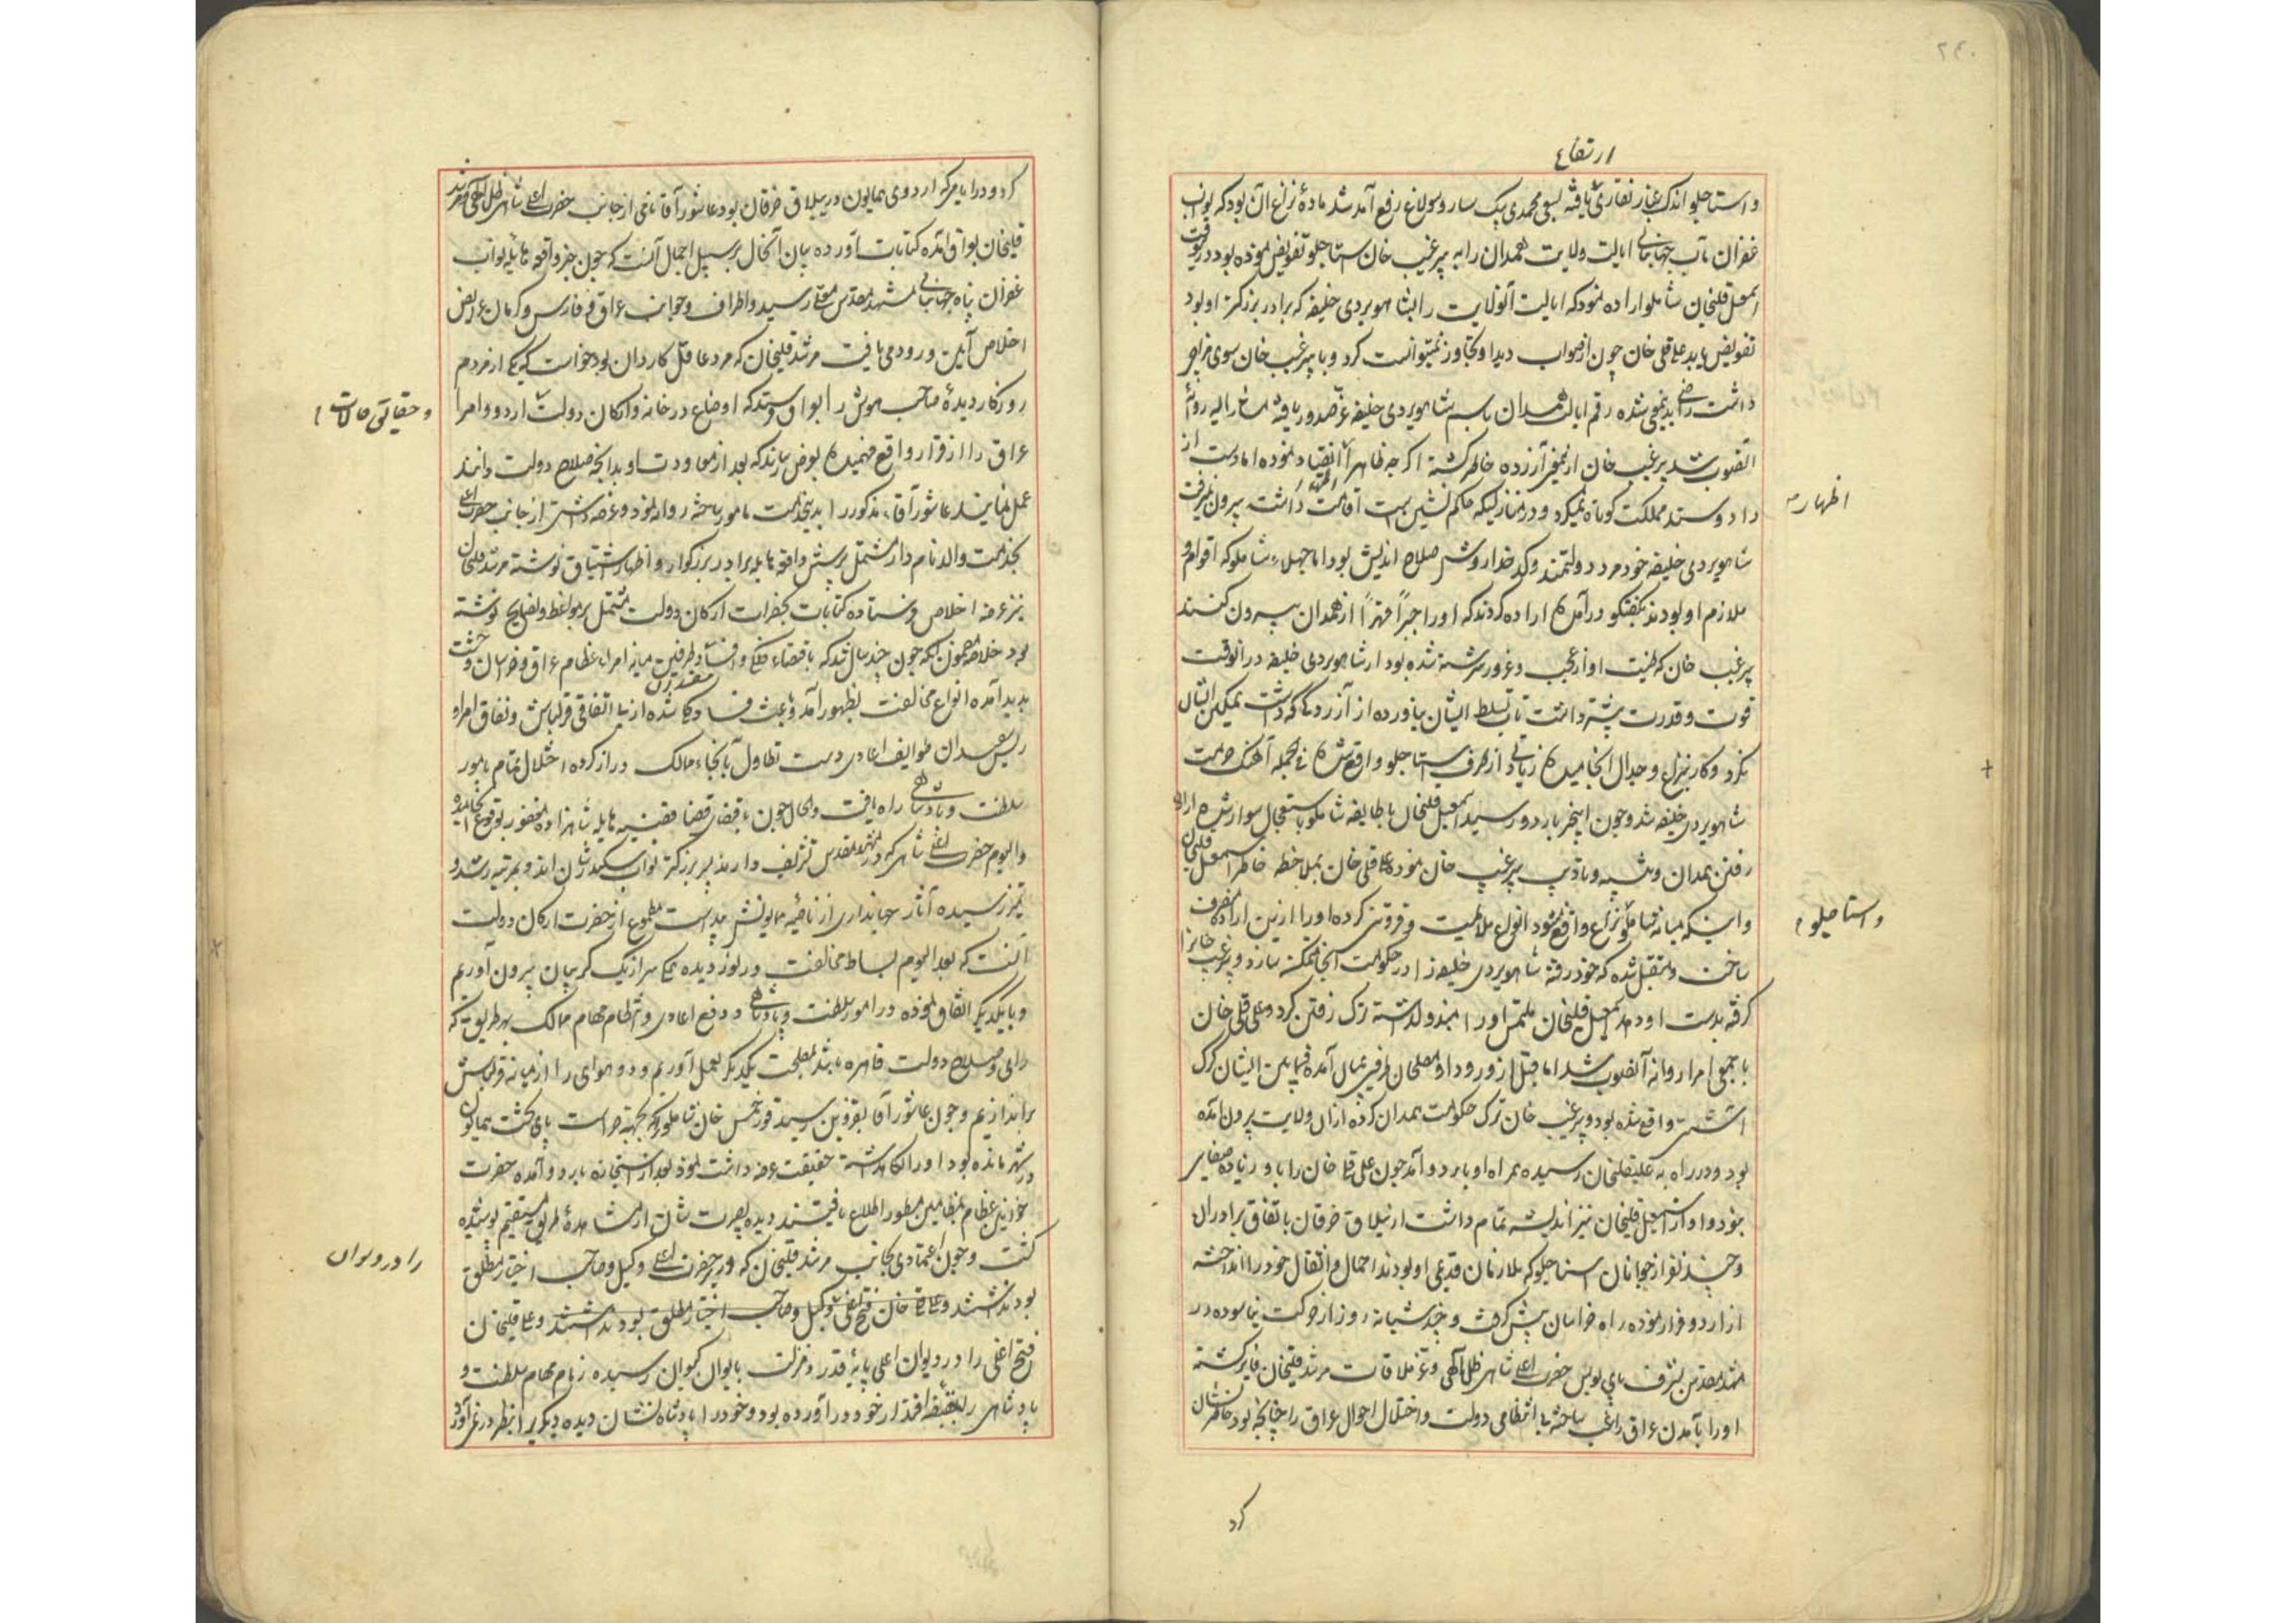 ۲۴۰
ارتفاع
و استاجلو اندک غبار نقاری یافته بسعی محمدی بیک سارو سولاغ رفع آمد شد ماده نزاع آن بود که نواب
غفران مآب جهانبانی ایالت ولایت همدان را به پیر غیب خان استاجلو تفویض نموده بود درینوقت
اسمعیل قلیخان شاملو اراده نمود که ایالت آنولایت را بشاهویردی خلیفه که برادر بزرگتر او بود
تفویض یابد علی قلی خان چون از صواب دید او تجاوز نمیتوانست کرد و با پیر غیب خان سوی مزاجی
داشت راضی بدینمعنی شده رقم ایالت همدان باسم شاهویردی خلیفه عز صدور یافته مشار الیه روانه
آنصوب شد پیر غیب خان ازینمعنی آزرده خاطر گشته اگر چه ظاهرا انقیاد نموده اما دست از
اظهار
داد و ستد مملکت کوتاه نمیکرد و در منازلیکه حاکم نشین است اقامت داشته بیرون نمیرفت
شاهویردی خلیفه خود مرد دولتمند و کدخدا روش صلاح اندیش بود اما جهلاء شاملو که اقوام و
ملازم او بودند بگفتگو درآمده اراده کردند که او را جبراً قهراً از همدان بیرون کنند
پیر غیب خان که طینت او از عجب و غرور سرشته شده بود از شاهویردی خلیفه در آنوقت
قوت و قدرت بیشتر داشت تاب تسلط ایشان نیاورده از آزردگی که داشت تمکین ایشان
نکرد و کار بنزاع و جدال انجامیده زیادتی از طرف استاجلو واقع شده فی الجمله آهنک حرمت
شاهویردی خلیفه شد و چون اینخبر باردو رسید اسمعیل قلیخان با طایفه شاملو باستعجال سوار شده اراده
رفتن همدان و تنبیه و تادیب پیر غیب خان نموده علی قلی خان بملاحظه خاطر اسمعیل قلیخان
و استاجلو
و اینکه میانه شاملو نزاع واقع نشود انواع ملاطفت و فروتنی کرده او را ازین اراده منصرف
ساخت و متقبل شده که خود رفته شاهویردی خلیفه را در حکومت آنجا متمکن سازد و پیر غیب خانرا
گرفته بدست او دهد اسمعیل قلیخان ملتمس او را مبذول داشته ترک رفتن کرد و علی قلی خان
با جمعی امرا روانه آنصوب شد اما قبل از ورود او مصلحان طرفین بمیان آمده فیمابین ایشان گرگ
آشتی واقع شده بود و پیر غیب خان ترک حکومت همدان کرده از آن ولایت بیرون آمده
بود و در راه به علیقلیخان رسیده همراه او باردو آمد چون علی قلی خان را با او زیاده صفایی
نبود و او از اسمعیل قلیخان نیز اندیشه تمام داشت از ییلاق خرقان باتفاق برادران
و چند نفر از جوانان استاجلو که ملازمان قدیمی او بودند احمال و اثقال خود را انداخته
از اردو فرار نموده راه خراسان پیش گرفت و چند شبانه روز از حرکت نیاسوده در
مشهد مقدس بشرف پای بوس حضرت اعلی شاهی ظل اللهی و عز ملاقات مرشد قلیخان فایز گشته
او را بآمدن عراق راغب ساخته بی انتظامی دولت و اختلال احوال عراق را چنانچه بود خاطر نشان
کرد
کرد و در ایامی که اردوی همایون در ییلاق خرقان بود عاشور آقا نامی از جانب حضرت اعلی شاهی ظل اللهی و مرشد
قلیخان بعراق آمده کتابات آورده بیان آنحال بر سبیل اجمال آنست که چون خبر واقعه هایله نواب
غفران پناه جهانبانی بمشهد مقدس معلی رسید و اطراف و جوانب عراق و فارس و کرمان عرایض
اخلاص آیین ورود می یافت مرشد قلیخان که مرد عاقل کاردان بود خواست که یکی از مردم
و حقایق حالات
روزکار دیده صاحب هوش را بعراق فرستد که اوضاع در خانه و ارکان دولت اردو و امرا
عراق را از قرار واقع فهمیده بعرض رساند که بعد از معاودت او بدانچه صلاح دولت دانند
عمل نمایند عاشور آقاء مذکور را بدینخدمت مامور ساخته روانه نمود و عرضه داشتی از جانب حضرت اعلی
بخدمت والد نامدار مشتمل بر پرسش واقعه هایله برادر بزرگوار و اظهار اشتیاق نوشته مرشد قلیخان
نیز عرضه اخلاص فرستاده کتابات بحضرات ارکان دولت مشتمل بر مواعظ و نصایح نوشته
بود خلاصه مضمون آنکه چون چند سال شد که باقتضاء فلکی و افساد طرفین میانه امراء عظام عراق و خراسان وحشت
مفسدان
پدید آمده انواع مخالفت بظهور آمد و باعث فساد کلی شده از بی اتفاقی قزلباش و نفاق امراء
ریش سفیدان طوایف اعادی دست تطاول بانحاء ممالک دراز کرده اختلال تمام بامور
سلطنت و پادشاهی راه یافت و الحال چون باقتضای قضا قضیه هایله شاهزاده مغفور بوقوع انجامیده
و الیوم حضرت اعلی شاهی که در مشهد مقدس تشریف دارند پسر بزرگتر نواب سکندر شان اند و بمرتبه رشد و
تمیز رسیده آثار جهانداری از ناصیه همایونش پیداست مطموع از حضرات ارکان دولت
آنست که بعد الیوم بساط مخالفت درنوردیده همگی سر از یک گریبان بیرون آوریم
و با یکدیگر اتفاق نموده در امور سلطنت و پادشاهی و دفع اعادی و انتظام مهام ممالک بهر طریق که
رای و صلاح دولت قاهره باشد بمصلحت یکدیگر بعمل آوریم و دو هوای را از میانه قزلباش
براندازیم و چون عاشور آقا بقزوین رسید قورخمس خان شاملو که بجهته حراست پای تخت همایون
در شهر مانده بود او را نگاهداشته حقیقت عرضه داشت نمود بعد از استجازه باردو آمده حضرت
خوانین عظام بمضامین مسطور اطلاع یافتند دیده بصیرت شان از مشاهده طریق مستقیم پوشیده
را در دیوان
گشت و چون اعتمادی بجانب مرشد قلیخان که در سر حضرت اعلی وکیل و صاحب اختیار مطلق
بود نداشتند و علی قلی خان فتح اغلی وکیل و صاحب اختیار مطلق بود نداشتند و علی قلیخان
فتح اغلی را در دیوان اعلی پایه قدر و منزلت بایوان کیوان رسیده زمام مهام سلطنت و
پادشاهی را بقبضه اقتدار خود درآورده بود و خود را پادشاه نشان دیده دیگری را بنظر در نمی آورد